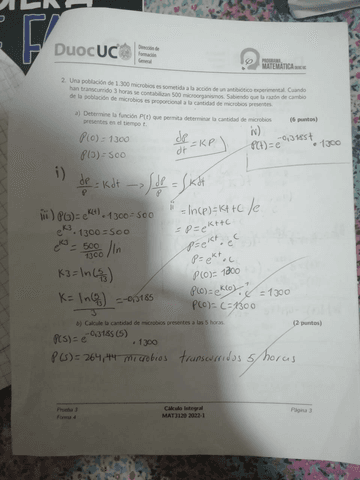 DuocUC
Dirección de
Formación
General
PROGRAMA
MATEMÁTICA
2. Una población de 1.300 microbios es sometida a la acción de un antibiótico experimental. Cuando
han transcurrido 3 horas se contabilizan 500 microorganismos. Sabiendo que la razón de cambio
de la población de microbios es proporcional a la cantidad de microbios presentes
a) Determine la función P(t) que permita determinar la cantidad de microbios (6 puntos)
presentes en el tiempo t.
P(0) = 1300
P(3) = 500
dp/dt = KP
iv)
P(t) = e^-0,3185t · 1300
i)
dp/p = Kdt → ∫dp/p = ∫Kdt
ii = ln(p) = Kt + C /e
= P = e^Kt+C
P = e^Kt · e^C
P = e^Kt · C
P(0) = 1300
P(0) = e^K(0) · C = 1300
P(0) = C = 1300
iii) P(3) = e^K(3) · 1300 = 500
e^K3 · 1300 = 500
e^K3 = 500/1300 /ln
K3 = ln(5/13)
K = ln(5/13)/3 = -0,3185
b) Calcule la cantidad de microbios presentes a las 5 horas. (2 puntos)
P(5) = e^-0,3185(5) · 1300
P(5) = 264,44 microbios transcurridos 5 horas
Prueba 3
Forma A
Cálculo Integral
MAT3120 2022-1
Página 3